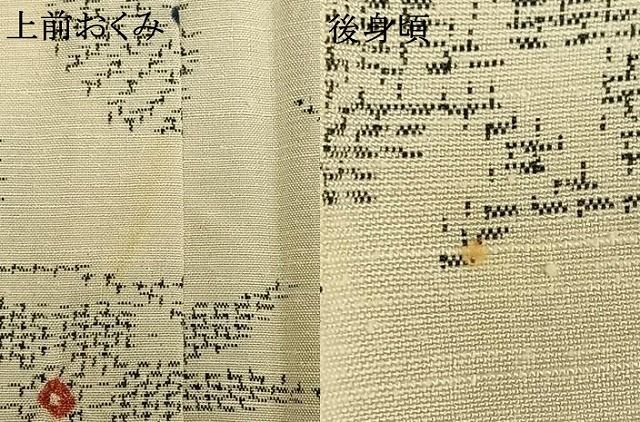 上前おくみ
後身頃